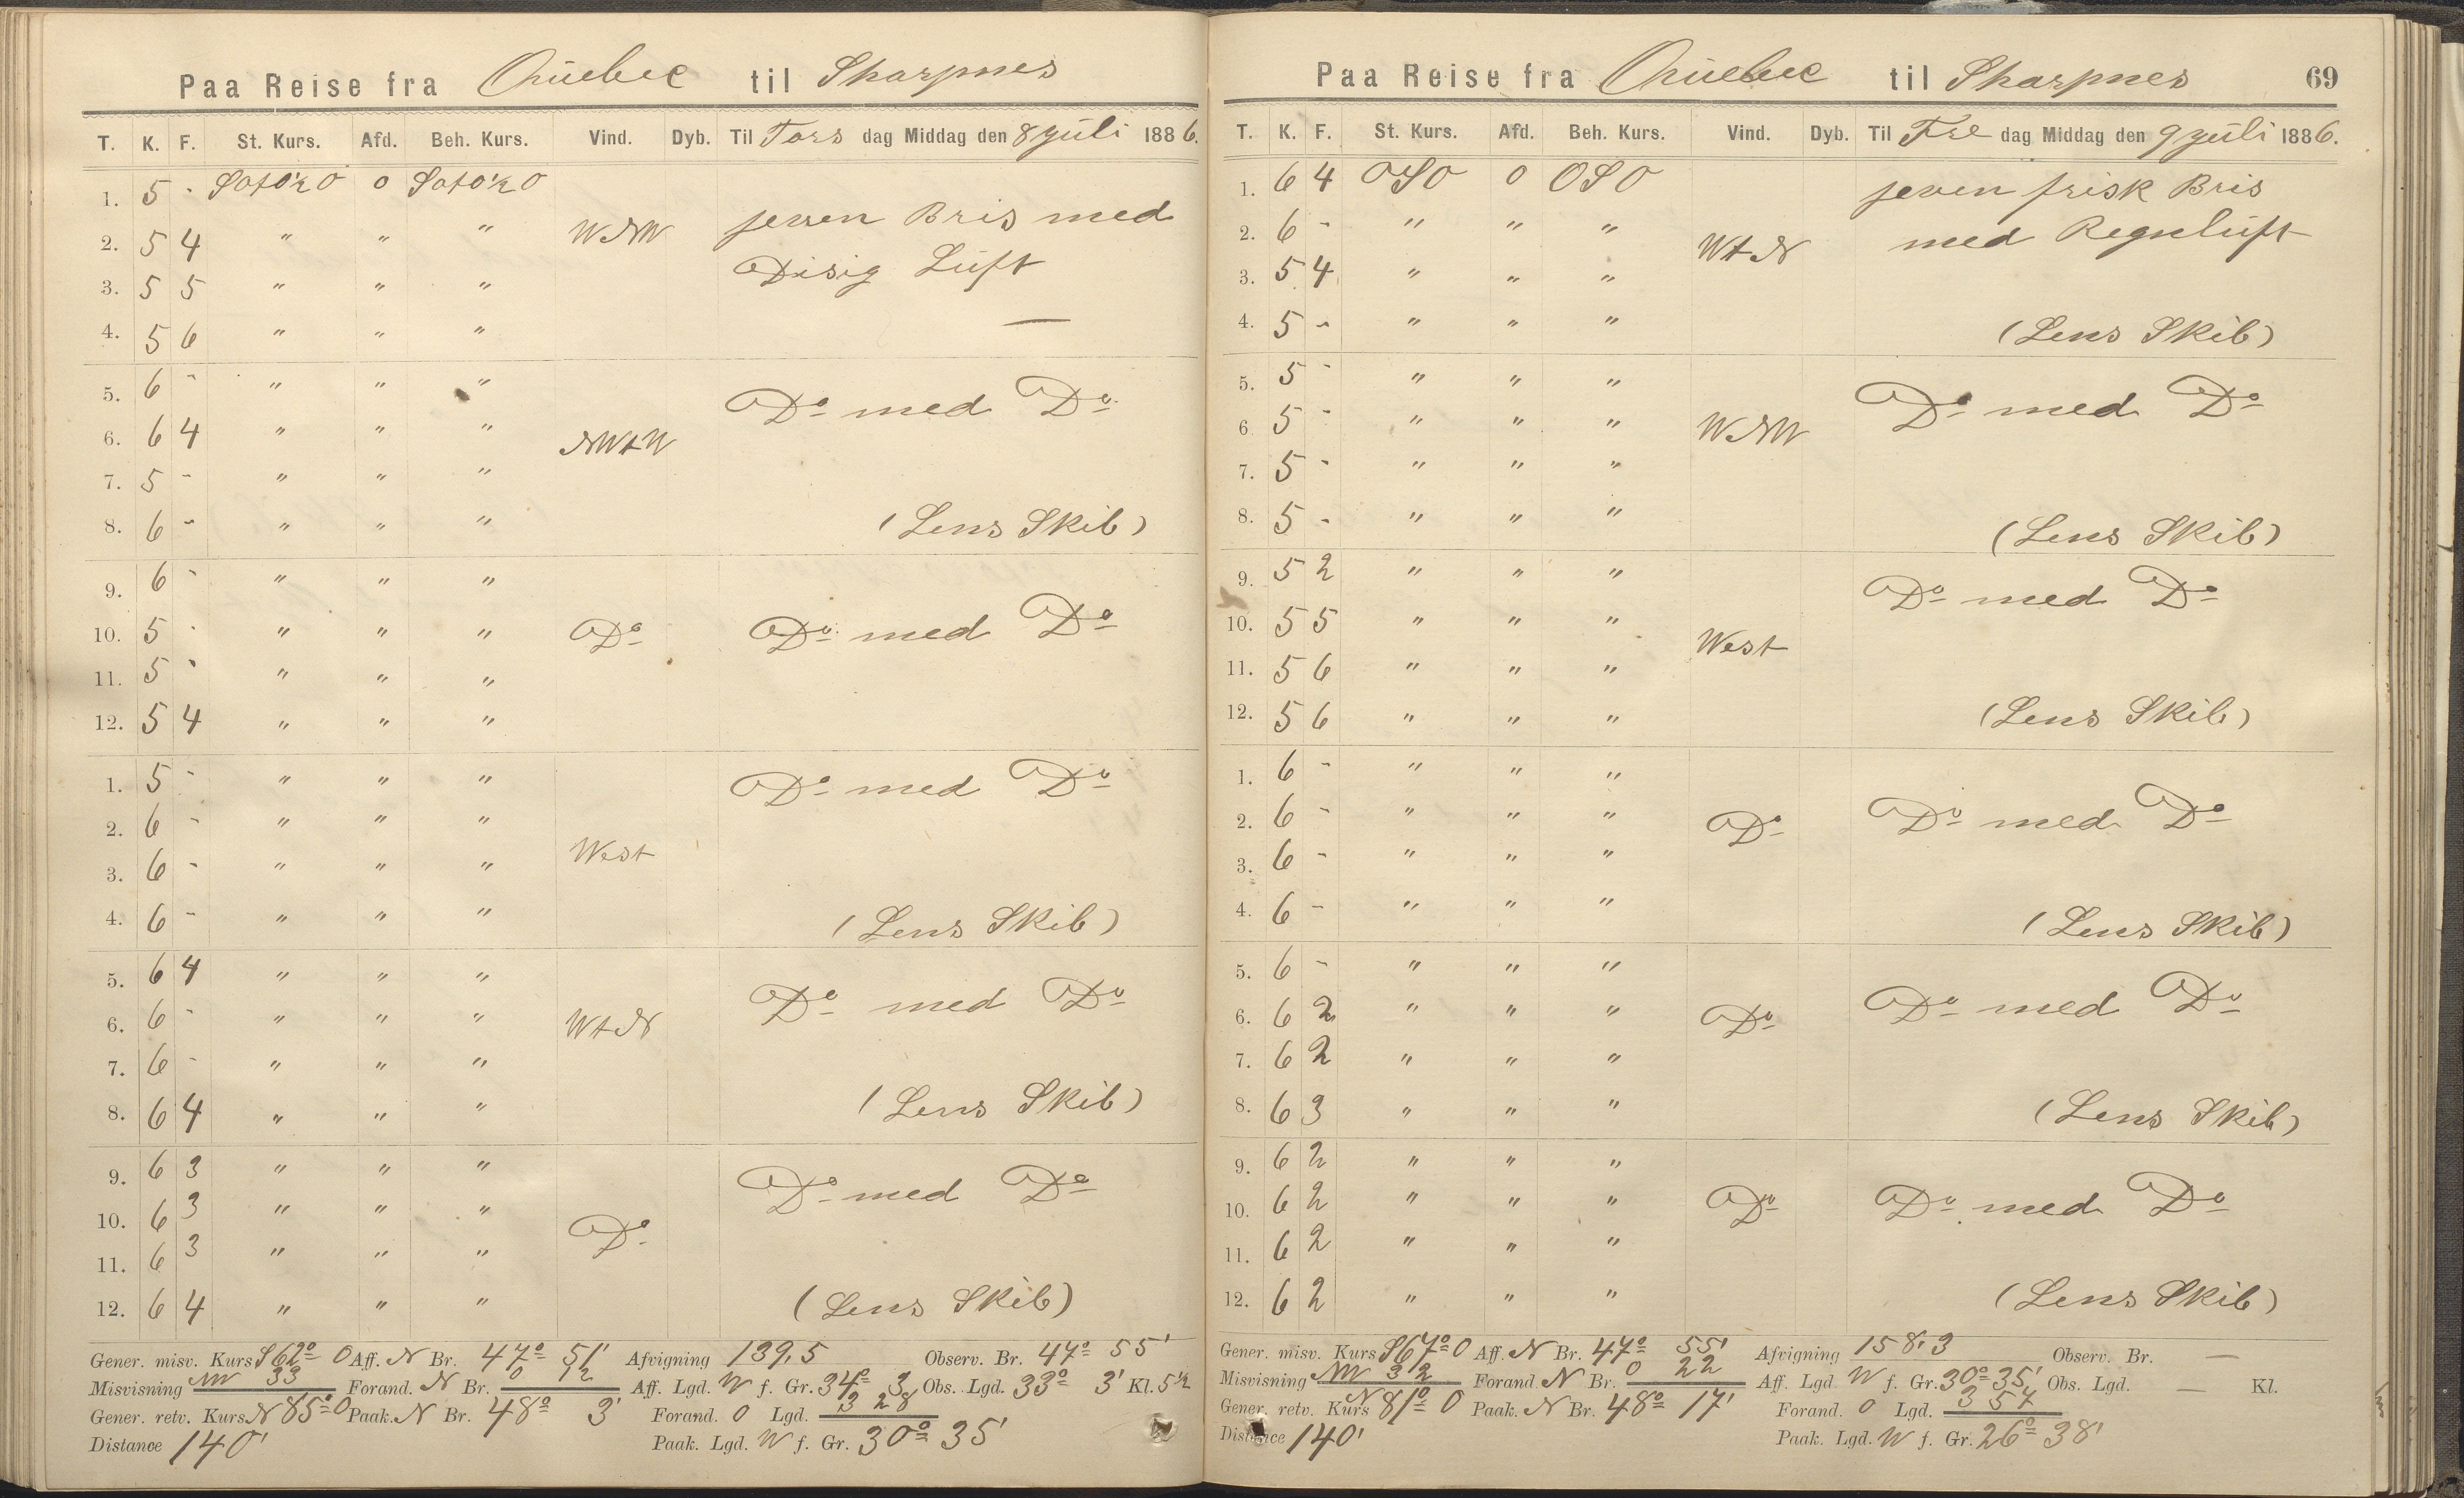 Paa Reise fra Quebec til Sharpnes
T. K. F. St. Kurs. Afd. Beh. Kurs. Vind. Dyb. Til Tors dag Middag den 8 Juli 1886.
1. 5 - SOtO½O 0 SOtO½O
jeven Bris med
2. 5 4 " " " WNW
Disig Luft
3. 5 5 " " "
4. 5 6 " " " —
5. 6 - " " "
Do med Do
6. 6 4 " " " NWtW
7. 5 - " " "
8. 6 - " " " (Lens Skib)
9. 6 - " " "
10. 5 - " " " Do Do med Do
11. 5 - " " "
12. 5 4 " " "
1. 5 - " " " Do med Do
2. 6 - " " "
West
3. 6 - " " "
4. 6 - " " " (Lens Skib)
5. 6 4 " " "
Do med Do
6. 6 - " " " WtN
7. 6 - " " "
8. 6 4 " " " (Lens Skib)
9. 6 3 " " "
Do med Do
10. 6 3 " " "
Do
11. 6 3 " " "
12. 6 4 " " " (Lens Skib)
Gener. misv. Kurs S 62° O Aff. N Br. 47° 51' Afvigning 139,5 Observ. Br. 47° 55'
Misvisning NW 33 Forand. N Br. 0 12 Aff. Lgd. W f. Gr. 34° 3 Obs. Lgd. 33° 3' Kl. 5½
Gener. retv. Kurs N 85° O Paak. N Br. 48° 3' Forand. O Lgd. 3 28
Distance 140' Paak. Lgd. W f. Gr. 30° 35'
Paa Reise fra Quebec til Sharpnes 69
T. K. F. St. Kurs. Afd. Beh. Kurs. Vind. Dyb. Til Fre dag Middag den 9 Juli 1886.
1. 6 4 OSO 0 OSO jeven frisk Bris
2. 6 - " " " WtN med Regnluft
3. 5 4 " " "
4. 5 - " " " (Lens Skib)
5. 5 - " " "
Do med Do
6 5 - " " " WNW
7. 5 - " " "
8. 5 - " " " (Lens Skib)
9. 5 2 " " "
Do med Do
10. 5 5 " " "
West
11. 5 6 " " "
12. 5 6 " " " (Lens Skib)
1. 6 - " " "
2. 6 - " " " Do Do med Do
3. 6 - " " "
4. 6 - " " " (Lens Skib)
5. 6 - " " "
6. 6 2 " " " Do Do med Do
7. 6 2 " " "
8. 6 3 " " " (Lens Skib)
9. 6 2 " " "
10. 6 2 " " " Do Do med Do
11. 6 2 " " "
12. 6 2 " " " (Lens Skib)
Gener. misv. Kurs S 67° O Aff. N Br. 47° 55' Afvigning 158,3 Observ. Br. —
Misvisning NW 32 Forand. N Br. 0 22 Aff. Lgd. W f. Gr. 30° 35' Obs. Lgd. — Kl.
Gener. retv. Kurs N 81° O Paak. N Br. 48° 17' Forand. O Lgd. 3 57
Distance 140' Paak. Lgd. W f. Gr. 26° 38'